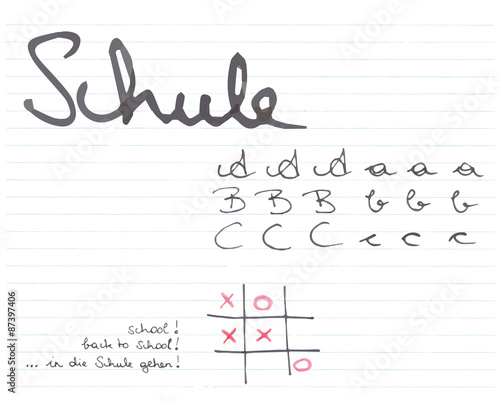 Schule
A A A a a a
B B B b b b
C C C c c c
X O
X X
O
school!
back to school!
... in die Schule gehen!
Adobe Stock
#87397406